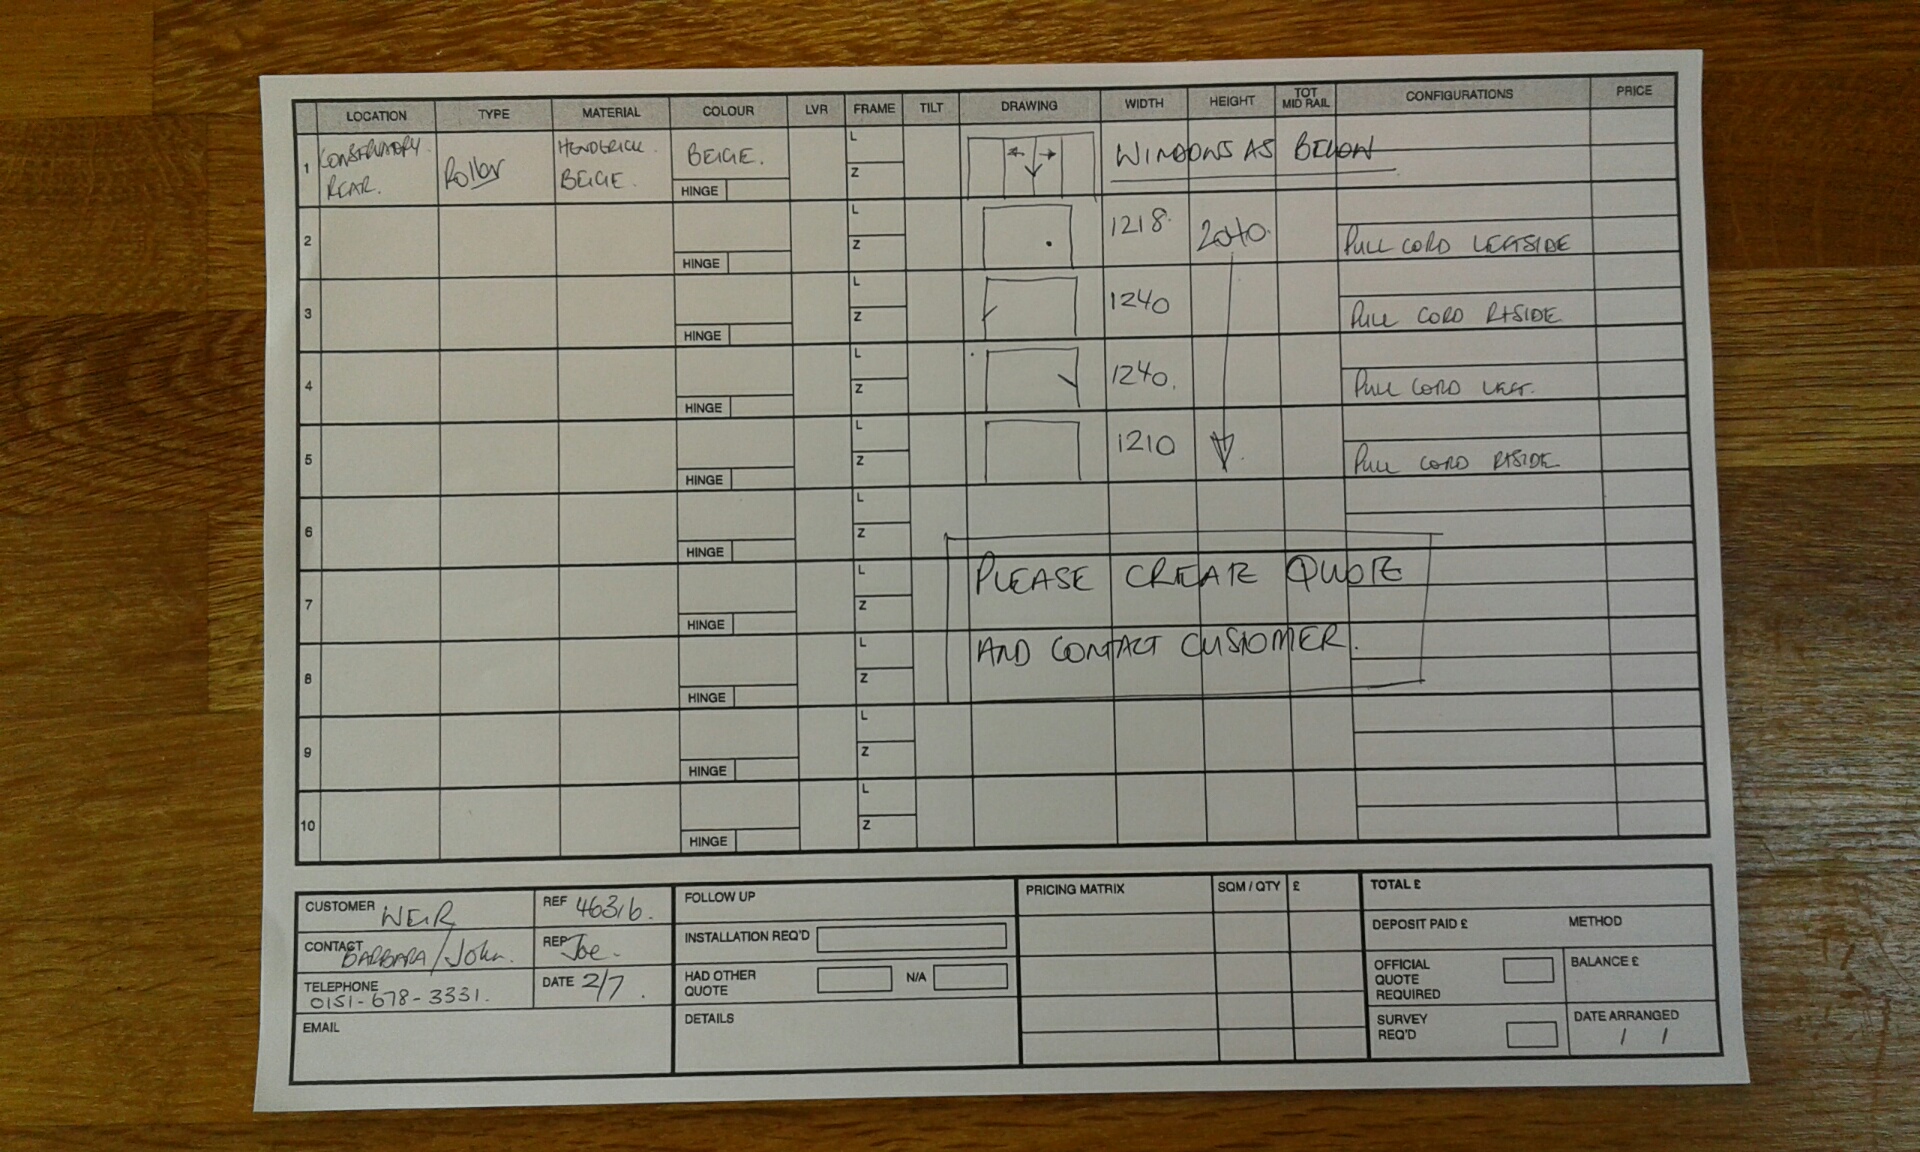 LOCATION TYPE MATERIAL COLOUR LVR FRAME TILT DRAWING WIDTH HEIGHT TOT MID RAIL CONFIGURATIONS PRICE
1 CONSERVATORY REAR. Roller HENDERICK BEIGE. BEIGE. HINGE L Z WINDOWS AS BELOW
2 HINGE L Z 1218. 2040. PULL CORD LEFTSIDE
3 HINGE L Z 1240 PULL CORD RTSIDE
4 HINGE L Z 1240. PULL CORD LEFT.
5 HINGE L Z 1210 PULL CORD RTSIDE
6 HINGE L Z
7 HINGE L Z PLEASE CREATE QUOTE
8 HINGE L Z AND CONTACT CUSTOMER.
9 HINGE L Z
10 HINGE L Z
CUSTOMER WEIR REF 46316.
CONTACT BARBARA/John. REP Joe.
TELEPHONE 0151-678-3331. DATE 2/7.
EMAIL
FOLLOW UP
INSTALLATION REQ'D
HAD OTHER QUOTE N/A
DETAILS
PRICING MATRIX SQM / QTY £
TOTAL £
DEPOSIT PAID £ METHOD
OFFICIAL QUOTE REQUIRED BALANCE £
SURVEY REQ'D DATE ARRANGED
/ /